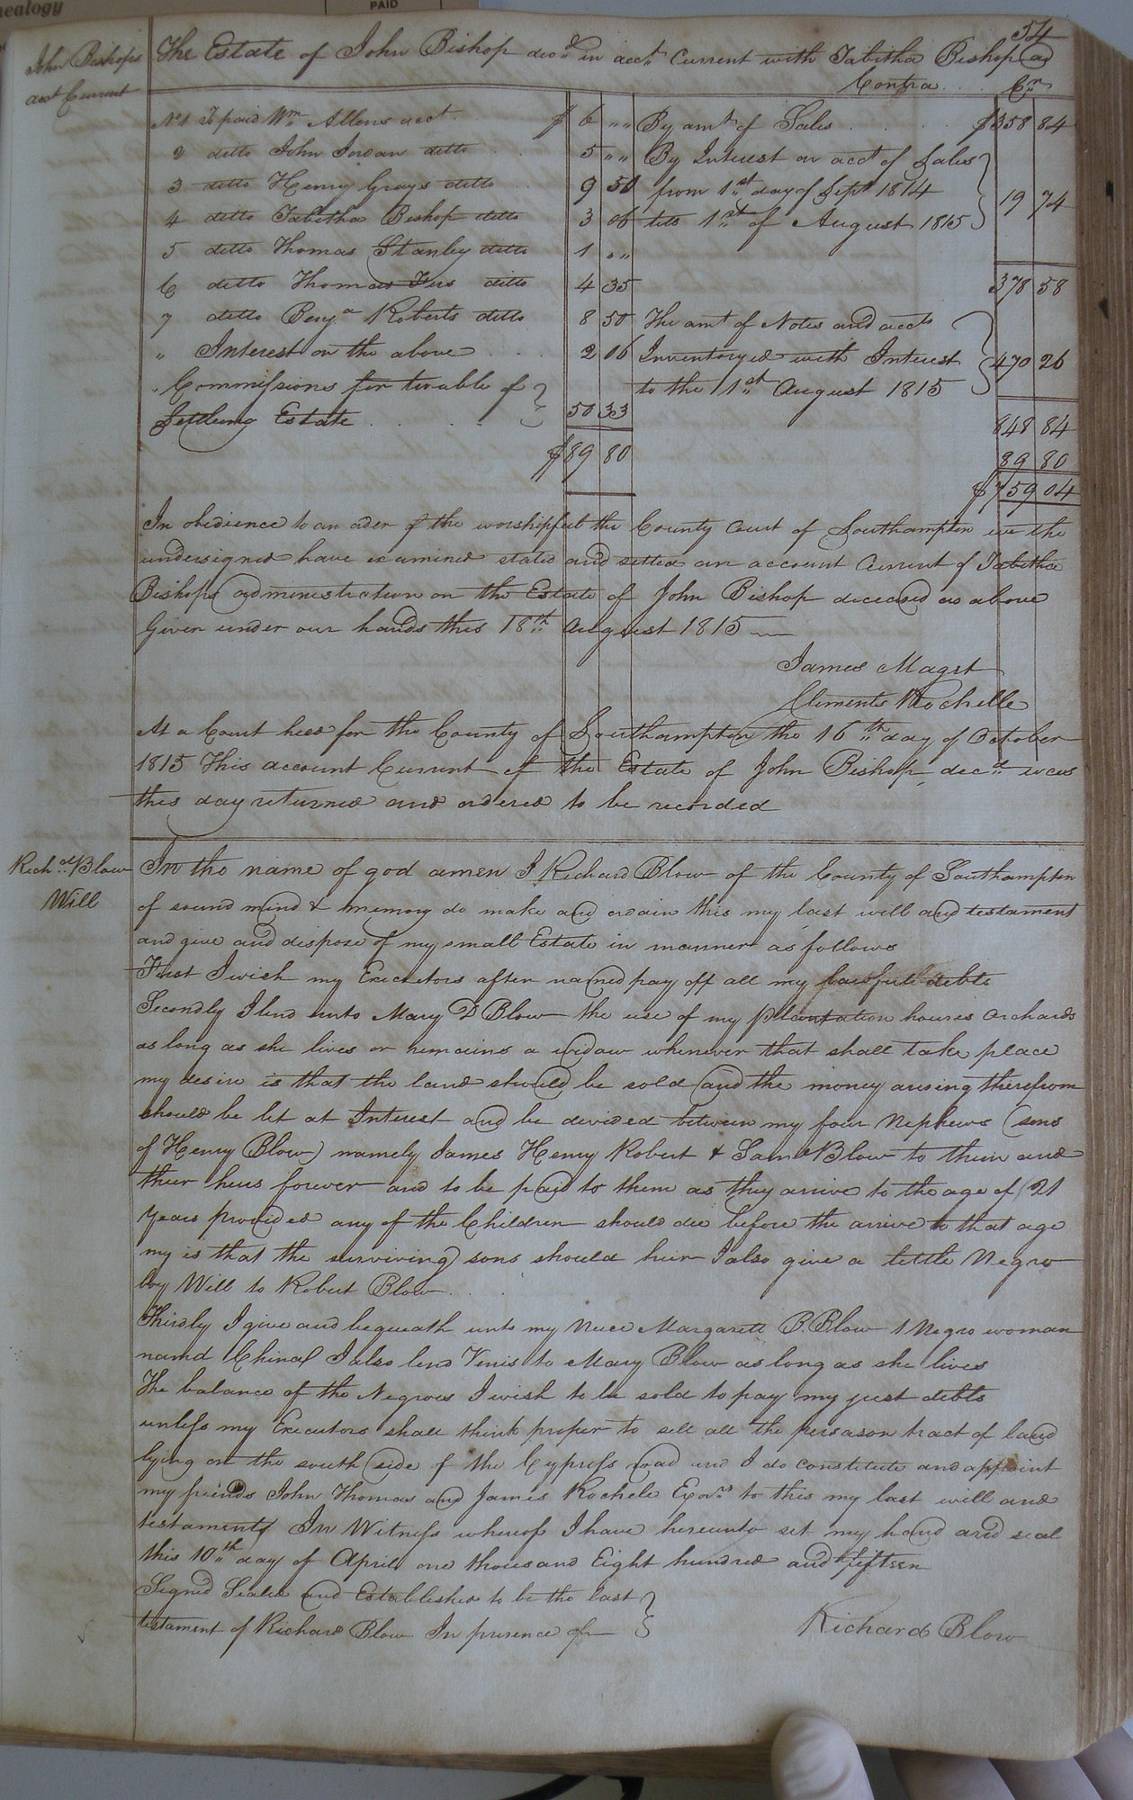 nealogy
PAID
54
John Bishops
acct Current
The Estate of John Bishop decd. in acct. Current with Tabitha Bishop ad
Contra Cr.
No 1 To paid Wm. Allens acct $ 6 " "
2 ditto John Jordan ditto 5 " "
3 ditto Henry Grays ditto 9 50
4 ditto Tabitha Bishop ditto 3 06
5 ditto Thomas Stanley ditto 1 " "
6 ditto Thomas ditto 4 35
7 ditto Benja Roberts ditto 8 50
" Interest on the above 2 06
Commissions for trouble of
Settling Estate 50 33
$ 89 80
By amt of Sales $ 358 84
By Interest on acct of Sales
from 1st day of Sept 1814
till 1st of August 1815 19 74
378 58
The amt of Notes and accts
Inventoryed with Interest
to the 1st August 1815 470 26
848 84
89 80
$ 759 04
In obedience to an oder of the worshipfull the County Court of Southampton we the
undersigned have examined stated and settled an account Current of Tabitha
Bishops administration on the Estate of John Bishop deceased as above
Given under our hands this 18th August 1815
James Maget
Clements Rochelle
At a Court held for the County of Southampton the 16th day of October
1815 This account Current of the Estate of John Bishop decd. was
this day returned and ordered to be recorded
Richd. Blow
Will
In the name of god amen I Richard Blow of the County of Southampton
of sound mind & memory do make and ordain this my last will and testament
and give and dispose of my small Estate in manner as follows
First I wish my Executors after named pay off all my lawfull debts
Secondly I lend unto Mary D Blow the use of my plantation houses orchards
as long as she lives or remains a widow whenever that shall take place
my desire is that the land should be sold and the money arising therefrom
should be let at Interest and be devided between my four Nephews (sons
of Henry Blow) namely James Henry Robert & Saml Blow to them and
their heirs forever and to be paid to them as they arrive to the age of 21
Years provided any of the Children should die before the arrive to that age
my is that the surviving sons should heir I also give a little Negro
boy Will to Robert Blow
Thirdly I give and bequeath unto my Niece Margarett P. Blow 1 Negro woman
namd I also lend Venis to Mary Blow as long as she lives
The balance of the Negroes I wish to be sold to pay my just debts
unless my Executors shall think proper to sell all the tract of land
lying on the south side of the Cypress road and I do constitute and appoint
my friends John Thomas and James Rochele Exors. to this my last will and
testament In Witness whereof I have hereunto set my hand and seal
this 10th day of April one thousand Eight hundred and fifteen
Signed Sealed and Established to be the last
testament of Richard Blow In presence of
Richard Blow